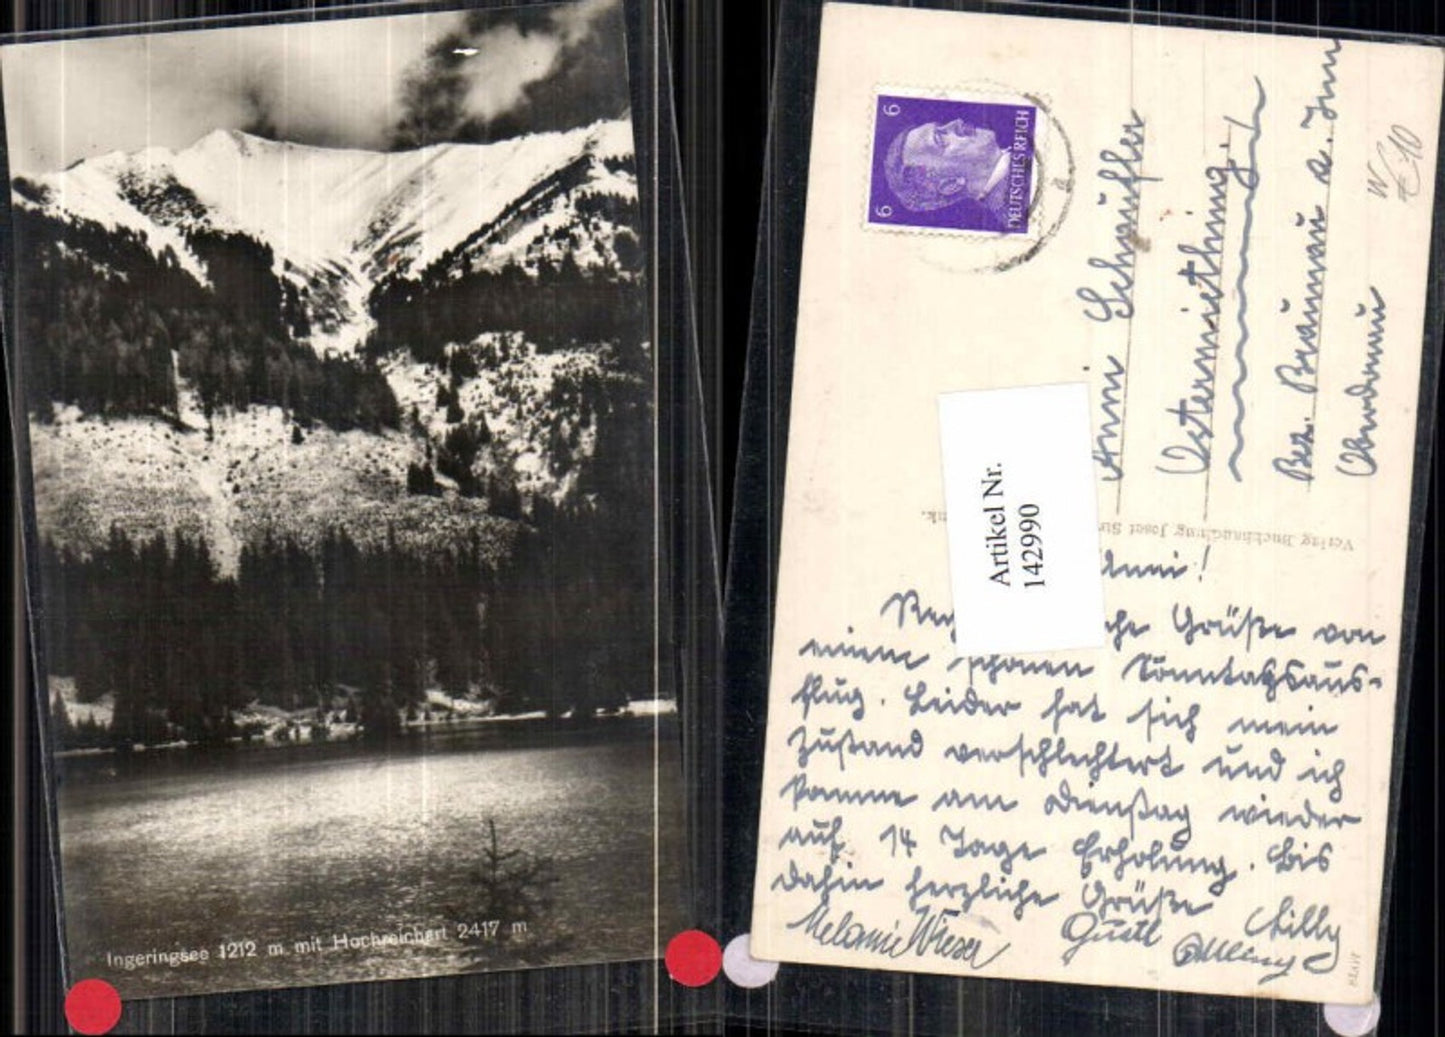 Ingeringsee 1212 m mit Hochreichart 2417 m
6
6
DEUTSCHES REICH
Anni Schaufler
Ostermiething
Bez. Braunau a. Inn
€ 10
Artikel Nr.
142990
Verlag Buchhandlung Josef
Anni!
Grüße von
einem schönen Sonntagsaus-
flug. Leider hat sich mein
Zustand verschlechtert und ich
komme am Dienstag wieder
auf 14 Tage Erholung. Bis
dahin herzliche Grüße
Cilly
Melanie Wieser
Gustl